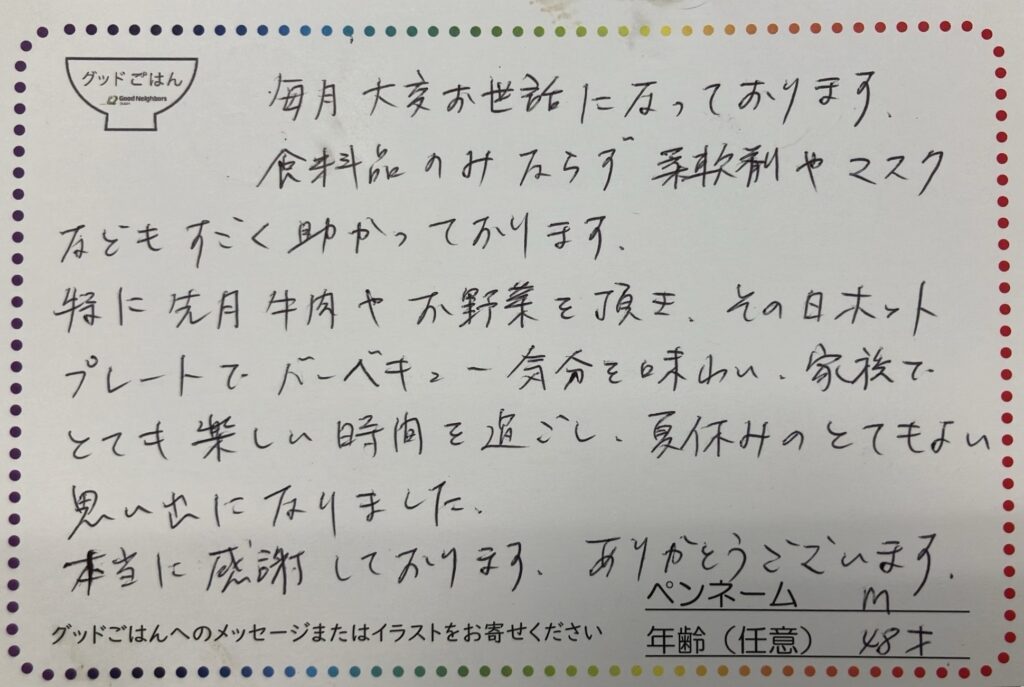 グッドごはん
Good Neighbors
毎月大変お世話になっております。
食料品のみならず柔軟剤やマスク
などもすごく助かっております。
特に先月牛肉やお野菜を頂き、その日ホット
プレートでバーベキュー気分を味わい、家族で
とても楽しい時間を過ごし、夏休みのとてもよい
思い出になりました。
本当に感謝しております。ありがとうございます。
ペンネーム m
グッドごはんへのメッセージまたはイラストをお寄せください
年齢（任意） 48才